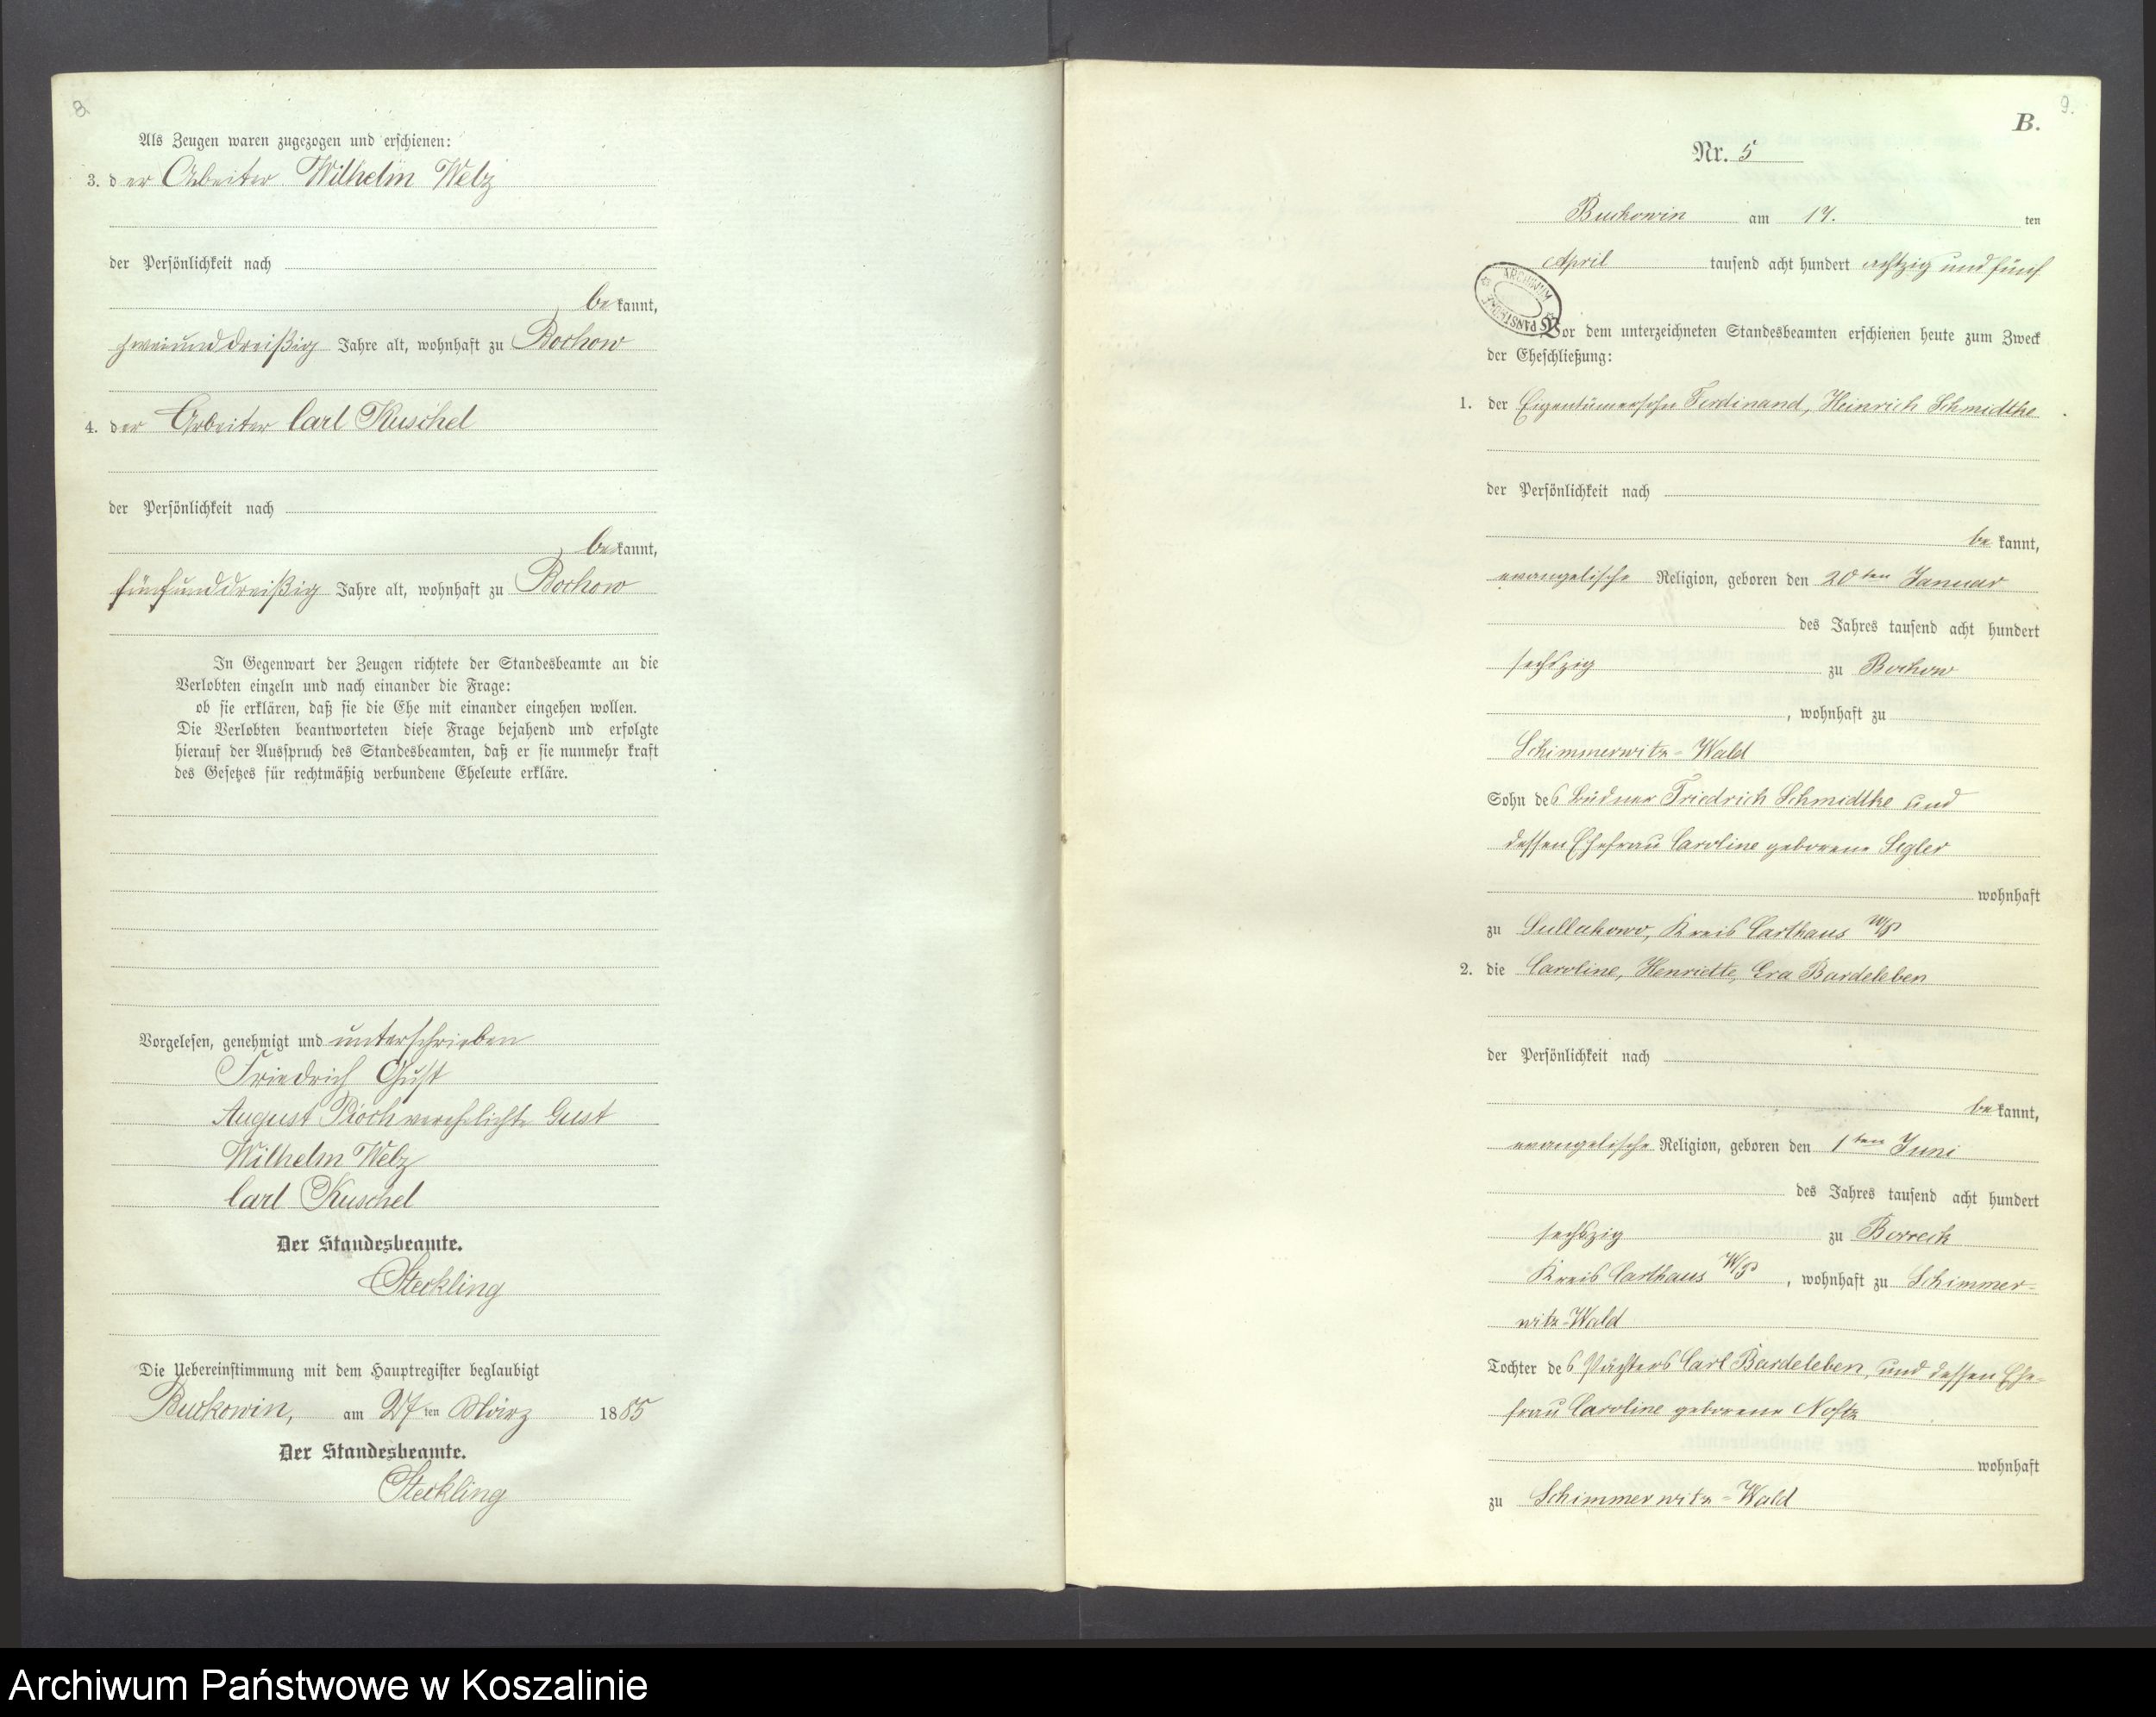 8.
Als Zeugen waren zugezogen und erschienen:
3. der Arbeiter Wilhelm Welz
der Persönlichkeit nach
bekannt,
zweiunddreißig Jahre alt, wohnhaft zu Bochow
4. der Arbeiter Carl Kuschel
der Persönlichkeit nach
bekannt,
fünfunddreißig Jahre alt, wohnhaft zu Bochow
In Gegenwart der Zeugen richtete der Standesbeamte an die
Verlobten einzeln und nach einander die Frage:
ob sie erklären, daß sie die Ehe mit einander eingehen wollen.
Die Verlobten beantworteten diese Frage bejahend und erfolgte
hierauf der Ausspruch des Standesbeamten, daß er sie nunmehr kraft
des Gesetzes für rechtmäßig verbundene Eheleute erkläre.
Vorgelesen, genehmigt und unterschrieben
Friedrich Gust
August Pioch verehelichte Gust
Wilhelm Welz
Carl Kuschel
Der Standesbeamte.
Steckling
Die Uebereinstimmung mit dem Hauptregister beglaubigt
Buckowin, am 27ten März 1885
Der Standesbeamte.
Steckling
9.
B.
Nr. 5
Buckowin am 17. ten
April tausend acht hundert achtzig und fünf
ARCHIWUM PAŃSTWOWE
Vor dem unterzeichneten Standesbeamten erschienen heute zum Zweck
der Eheschließung:
1. der Eigentümersohn Ferdinand, Heinrich Schmidtke
der Persönlichkeit nach
bekannt,
evangelische Religion, geboren den 20ten Januar
des Jahres tausend acht hundert
sechszig zu Bochow
, wohnhaft zu
Schimmerwitz-Wald
Sohn des Büdner Friedrich Schmidtke und
dessen Ehefrau Caroline geborene Segler
wohnhaft
zu Sullakowo, Kreis Carthaus W/P
2. die Caroline, Henriette, Bardeleben
der Persönlichkeit nach
bekannt,
evangelische Religion, geboren den 1ten Juni
des Jahres tausend acht hundert
sechszig zu Borreck
Kreis Carthaus W/P, wohnhaft zu Schimmer-
witz-Wald
Tochter des Pächters Carl Bardeleben, und dessen Ehe-
frau Caroline geborene Nostz
wohnhaft
zu Schimmerwitz-Wald
Archiwum Państwowe w Koszalinie